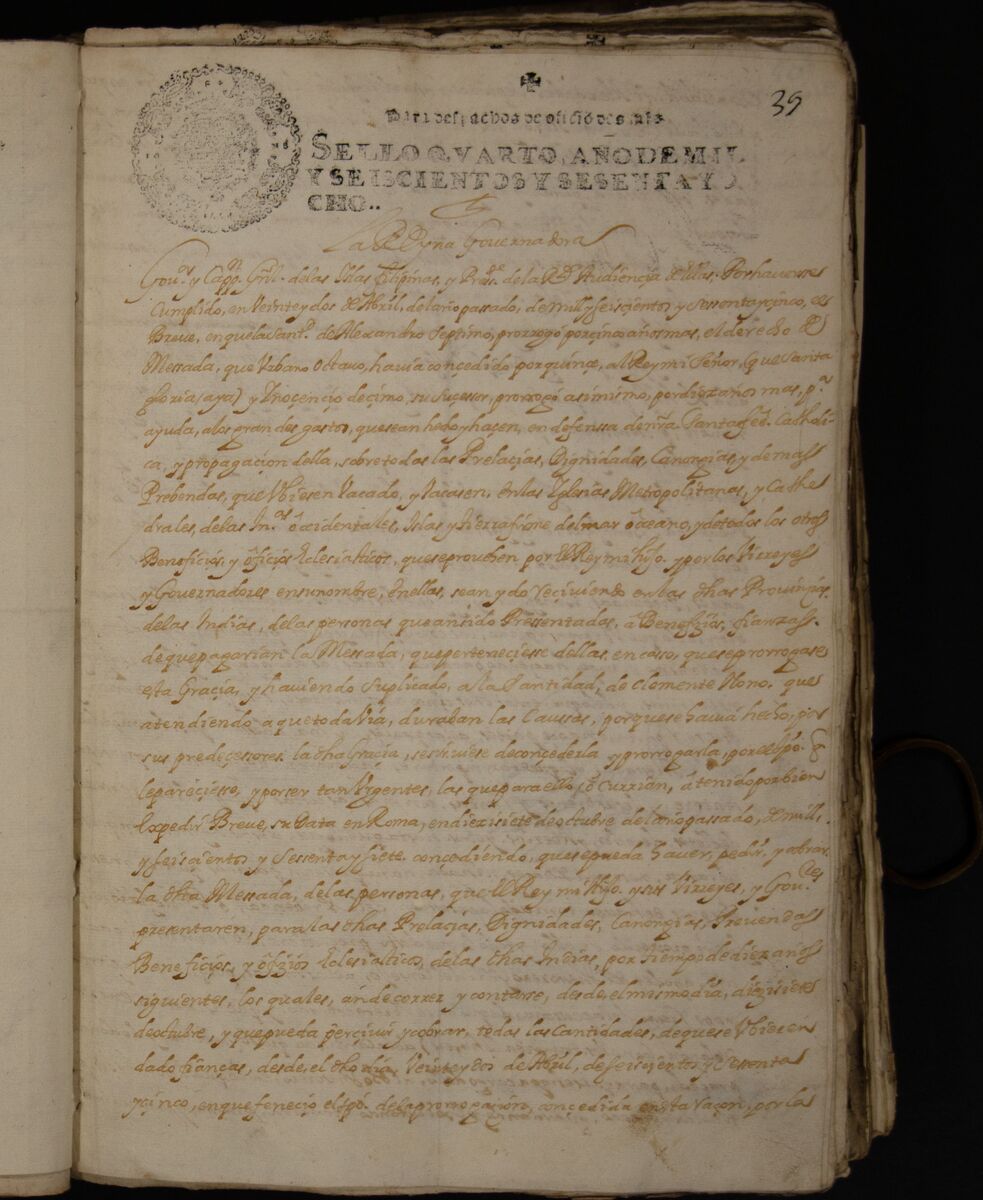 39
Para despachos de oficio dos mrs.
SELLO QVARTO, AÑO DE MIL
Y SEISCIENTOS Y SESENTA Y O
CHO..
La Reyna Governadora
Gou.or y Capp.n Grl. de las Islas filipinas, y Pres.te de la R.l Audiencia de ellas. Por hauerse
Cumplido, en Veinte y dos de Abril, del año passado, de mill y seiscientos y sessenta y cinco, el
Breve, en que la sant.d de Alexandro Septimo, prorrogó por cinco años mas, el derecho de
Messada, que Vrbano Octauo, hauia conçedido por quinçe, al Rey mi Señor, (que santa
gloria aya) y Ynocençio deçimo, su suçesor, prorrogó asimismo, por diez años mas, p.a
ayuda, a los grandes gastos, que se an hecho y haçen, en defenssa de nr̃a Santa feé Catholi-
ca, y propagaçion della, sobre todas las Prelaçias, Dignidades, Canongias, y demas
Prebendas, que Vbiesen Vacado, y Vacasen, en las Yglesias Metropolitanas, y Cathe
drales, de las Yn.as occidentales, Islas y tierra firme del mar oçeano, y de todos los otros
Benefiçios, y offiçios Eclesiasticos, que se proueen por el Rey mi hijo, y por los Virreyes
y Governadores en su nombre, en ellas, se an ydo reciuiendo en las dhas Prouinçias,
de las Indias, de las personas que an sido Pressentadas, a Benefizios, fianzas
de que pagarian la Messada, que perteneçiesse dellas, en casso, que se prorrogase
esta Graçia, y hauiendo suplicado, a la santidad, de Clemente Nono, que
atendiendo a que todavia, duraban las Caussas, porque se hauia hecho, por
sus predeçessores la dha Graçia, se siruiese de conçederla y prorrogarla, por el tpo. q̃
le pareçiesse, y por ser tan Vrgentes, las que para ello, ocurrian, á tenido por bien
Expedir Breve, su Data en Roma, en diez i siete de octubre del año passado, de mill,
y seisçientos y sessenta y siete, conçediendo, que se pueda hauer, pedir, y cobrar
la dha Messada, de las personas, que el Rey mi Hijo, y sus Virreyes, y Gou.res
presentaren, para las dhas Prelaçias, Dignidades, Canongias, Preuendas
Benefiçios, y offizios Eclesiasticos, de las dhas Indias, por tiempo de diez años
siguientes, los quales, an de correr y contarse, desde, el mismo dia, diez i siete
de octubre, y que pueda perçiuir y cobrar, todas las cantidades, de que se Vbiesen
dado fianças, desde, el dho dia, Veinte y dos de Abril, de seisçientos y sessenta
y çinco, en que feneçió el tpo. de la prorrogaçion, conçedida en esta raçon, por los